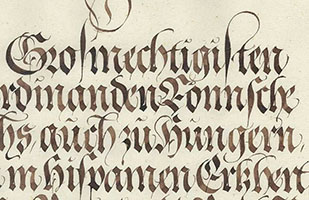 Grosmechtigisten
rdinanden Romische
hs, auch zu Hungern,
m hispanien Ertzhert